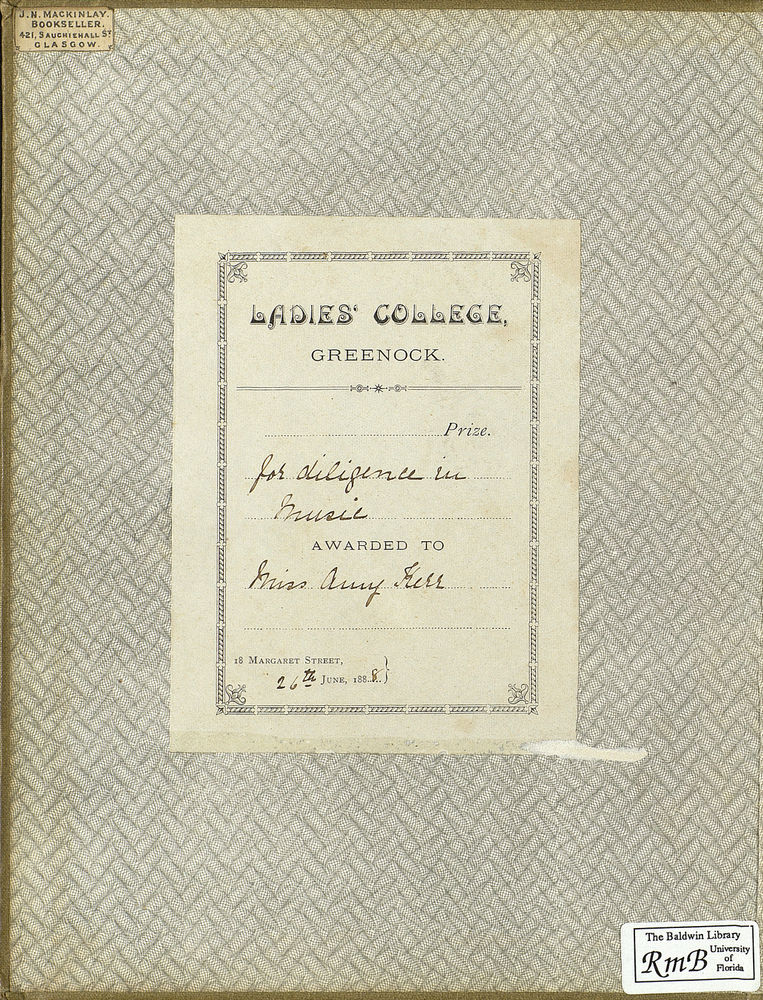 J.N. MACKINLAY.
BOOKSELLER.
421, SAUCHIEHALL ST
GLASGOW.
LADIES' COLLEGE,
GREENOCK.
Prize.
for diligence in
Music
AWARDED TO
Miss Amy Kerr
18 MARGARET STREET,
26th JUNE, 1888.
The Baldwin Library
RmB University
of
Florida